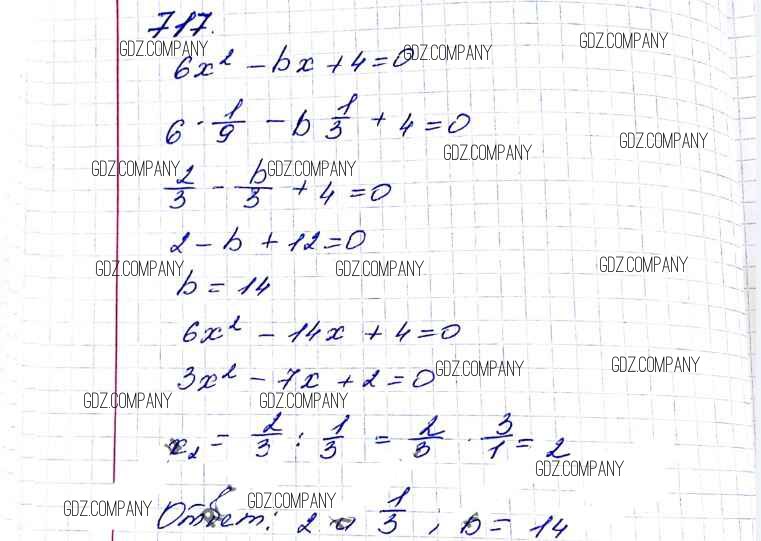 717.
GDZ.COMPANY GDZ.COMPANY GDZ.COMPANY
6x² - bx + 4 = 0
6 · 1/9 - b 1/3 + 4 = 0
GDZ.COMPANY GDZ.COMPANY GDZ.COMPANY GDZ.COMPANY
2/3 - b/3 + 4 = 0
2 - b + 12 = 0
GDZ.COMPANY GDZ.COMPANY GDZ.COMPANY
b = 14
6x² - 14x + 4 = 0
3x² - 7x + 2 = 0
GDZ.COMPANY GDZ.COMPANY GDZ.COMPANY GDZ.COMPANY
x₂ = 2/3 : 1/3 = 2/3 · 3/1 = 2
GDZ.COMPANY GDZ.COMPANY GDZ.COMPANY
Ответ: 2 и 1/3 ; b = 14